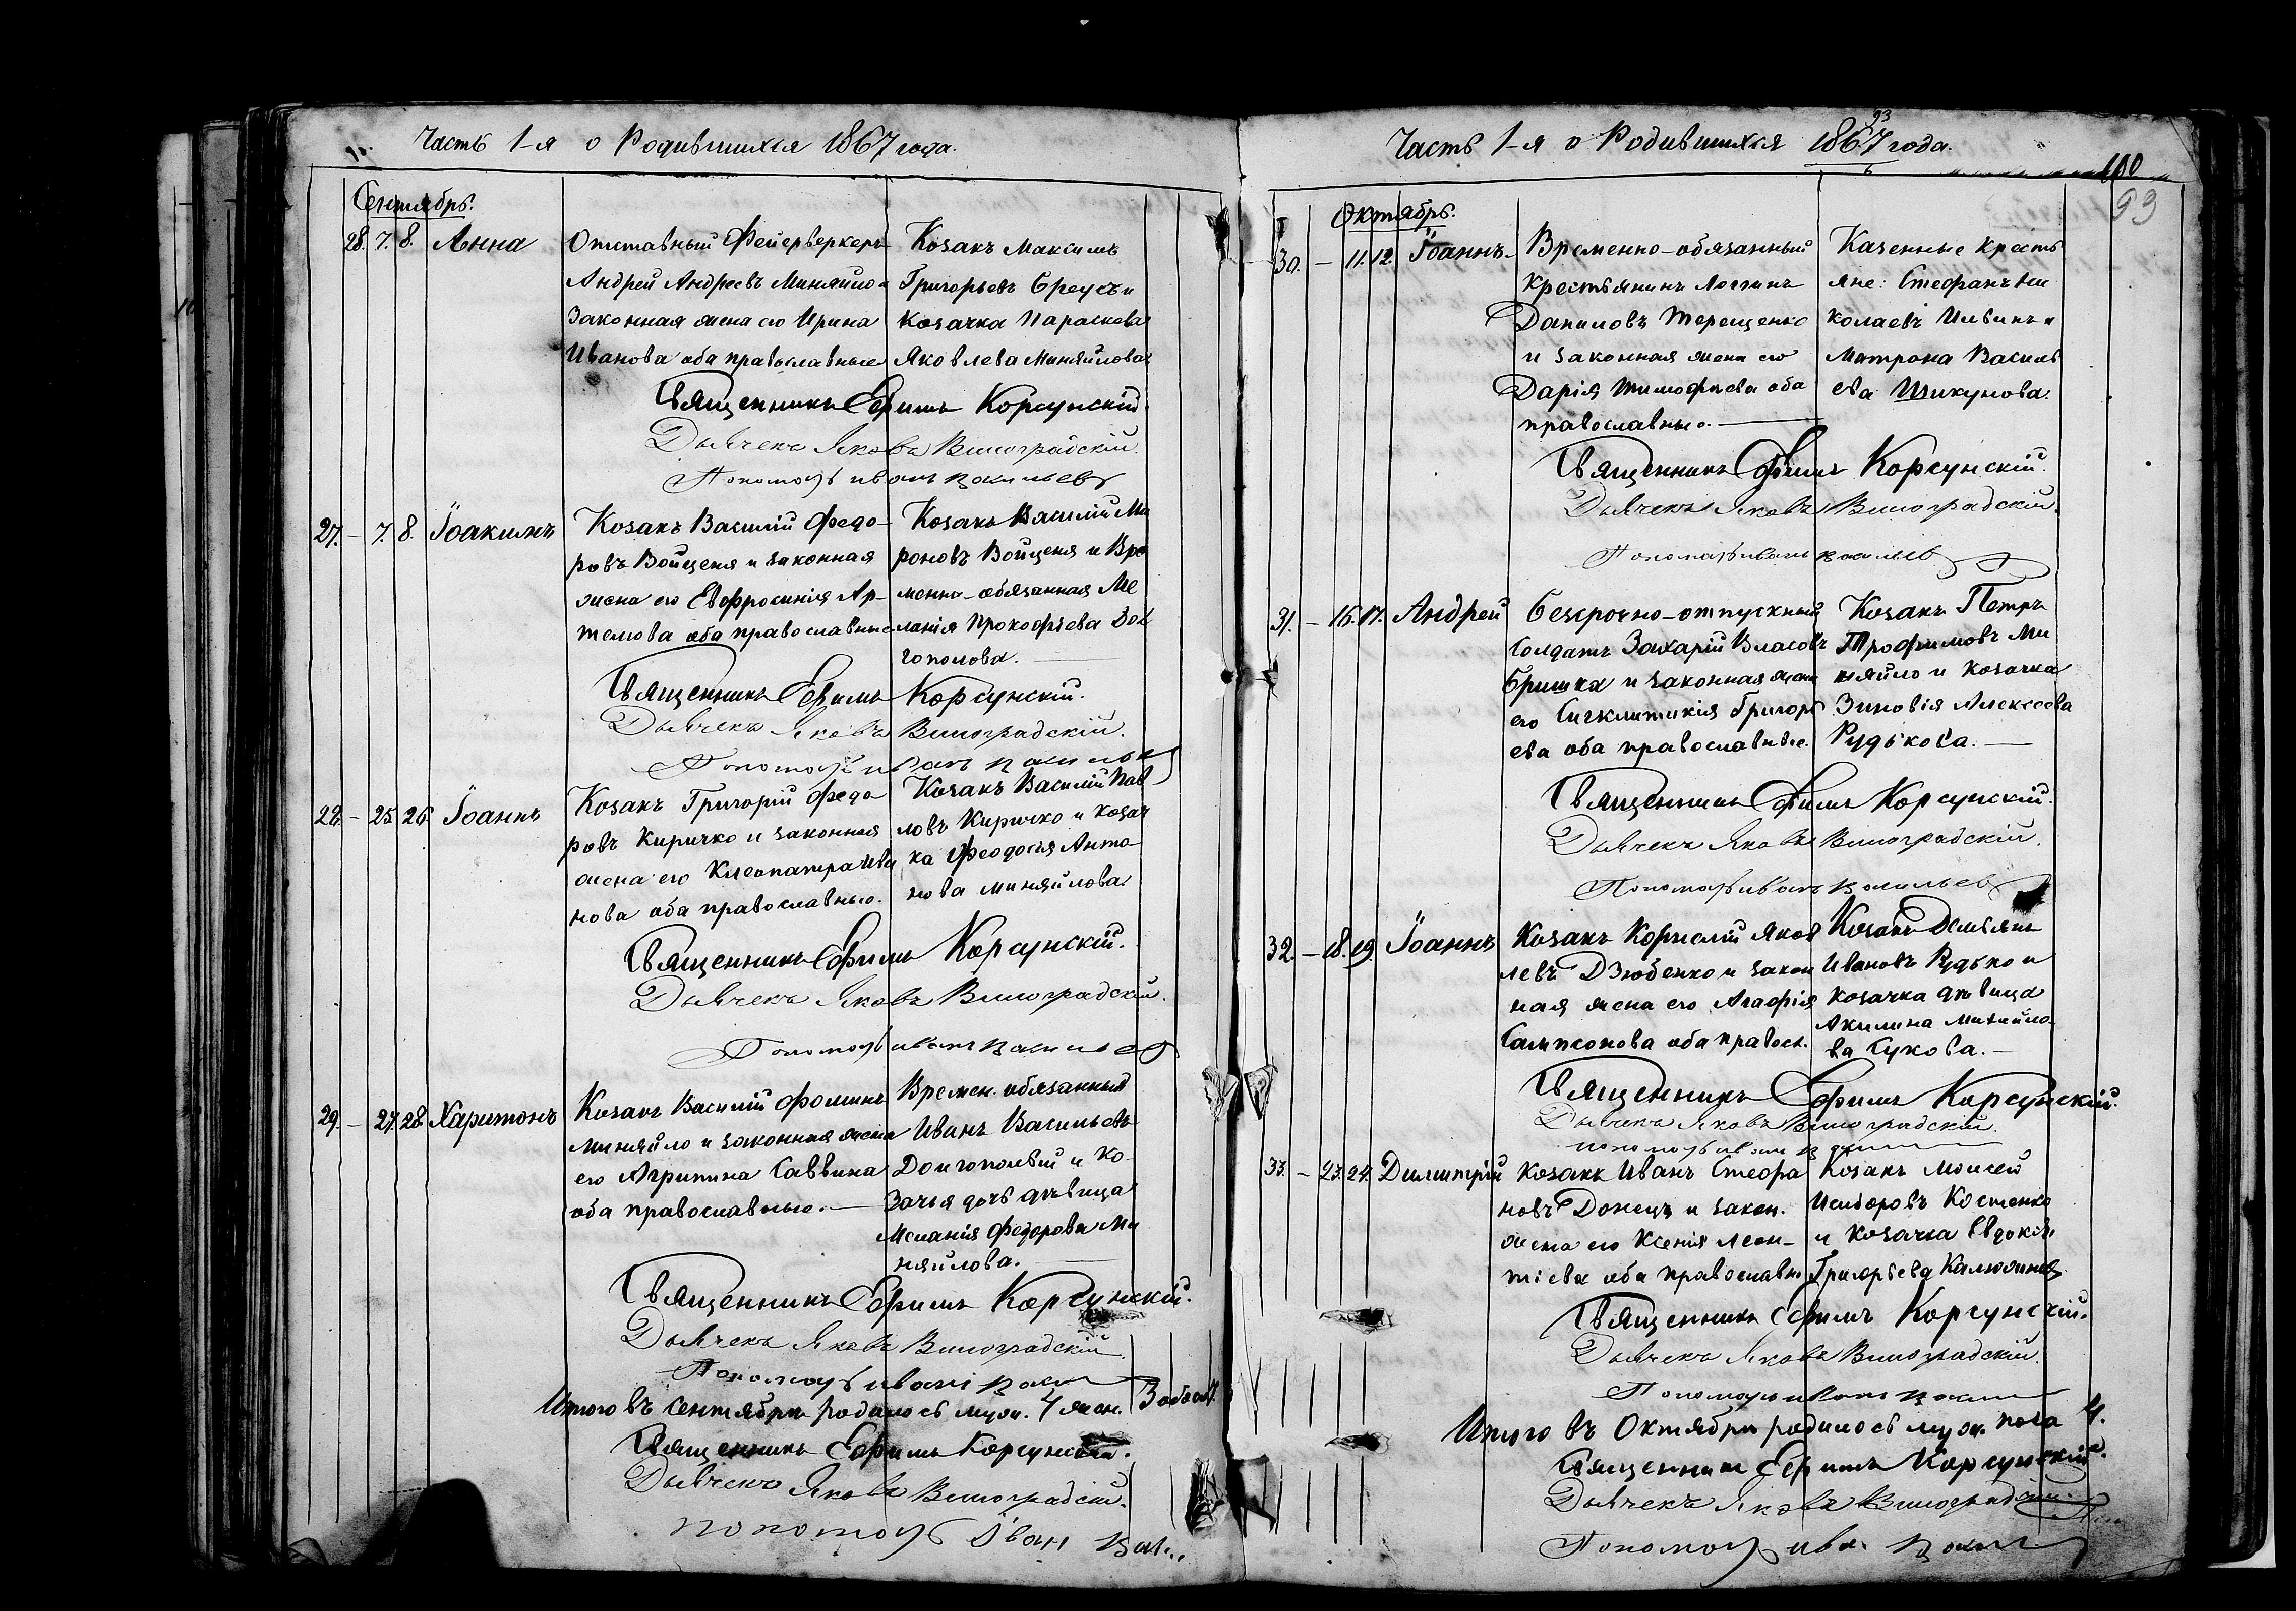 Часть 1-я о Родившихся 1867 года.
Сентябрь.
28. 7. 8. Анна
Отставный Фейерверкеръ
Андрей Андреевъ Миняйло и
Законная жена его Ирина
Иванова оба православные
Козакъ Максимъ
Григорьевъ Бреусъ и
Козачка Параскева
Яковлева Миняйлова
Священникъ Ефимъ Корсунскій
Дьячекъ Яковъ Виноградскій.
Пономарь иванъ васильевъ
27. – 7. 8. Іоакимъ
Козакъ Василій Федо-
ровъ Войценя и законная
жена его Евфросинія Ар-
темова оба православные
Козакъ Василій Ми
роновъ Войценя и Вре
менно-обязанная Ме
ланія Прокофіева Дол
гополова.
Священникъ Ефимъ Корсунскій.
Дьячекъ Яковъ Виноградскій.
Пономарь иванъ васильевъ
28. – 25. 26. Іоаннъ
Козакъ Григорій Федо
ровъ Киричко и законная
жена его Клеопатра Ива
нова оба православные.
Козакъ Василій Пав
ловъ Киричко и козач
ка Феодосія Анто-
нова Миняйлова.
Священникъ Ефимъ Корсунскій.
Дьячекъ Яковъ Виноградскій.
Пономарь иванъ васильевъ
29. – 27. 28. Харитонъ
Козакъ Василій Фоминъ
Миняйло и законная жена
его Агрипина Саввина
оба православные.
Времен. обязанный
Иванъ Васильевъ
Долгополый и Ко-
зачья дочь дѣвица
Меланія Федорова Ми
няйлова.
Священникъ Ефимъ Корсунскій.
Дьячекъ Яковъ Виноградскій.
Пономарь иванъ
Итого въ Сентябрѣ родилось муж. 4 жен. 3 обоего 7.
Священникъ Ефимъ Корсунскій.
Дьячекъ Яковъ Виноградскій.
пономарь іван
93
Часть 1-я о Родившихся 1867 года.
100
93
Октябрь.
30. – 11. 12. Іоаннъ.
Временно-обязанный
Крестьянинъ Логгинъ
Даниловъ Терещенко
и законная жена его
Дарія Тимофѣева оба
православные.
Казенные Кресть
яне: Стефанъ Ни
колаевъ Ильинъ и
Матрона Василь
ева Шикунова.
Священникъ Ефимъ Корсунскій.
Дьячекъ Яковъ Виноградскій.
Пономарь иванъ васильевъ
31. – 16. 17. Андрей
Безсрочно-отпускный
Солдатъ Захарій Власовъ
Бришка и законная жена
его Сигклитикія Григорь
ева оба православные.
Козакъ Петръ
Трофимовъ Ми
няйло и козачка
Зиновія Алексеева
Рудькова.
Священникъ Ефимъ Корсунскій.
Дьячекъ Яковъ Виноградскій.
Пономарь иванъ васильевъ
32. – 18. 19. Іоаннъ
Козакъ Корнелій Яков
левъ Дзюбенко и закон
ная жена его Агафія
Сампсонова оба правосл.
Козакъ Демьянъ
Ивановъ Рудько и
козачка дѣвица
Акилина Михайло
ва Сукова.
Священникъ Ефимъ Корсунскій.
Дьячекъ Яковъ Виноградскій.
пономарь иванъ
33. – 23. 24. Димитрій
Козакъ Иванъ Стефа
новъ Донецъ и закон.
жена его Ксенія Леон-
тіева оба православн.
Козакъ Моисей
Исидоровъ Костенко
и козачка Евдокія
Григорьева
Священникъ Ефимъ Корсунскій.
Дьячекъ Яковъ Виноградскій.
Пономарь иванъ
Итого въ Октябрѣ родилось муж. пола 4.
Священникъ Ефимъ Корсунскій.
Дьячекъ Яковъ Виноградскій.
Пономарь иван